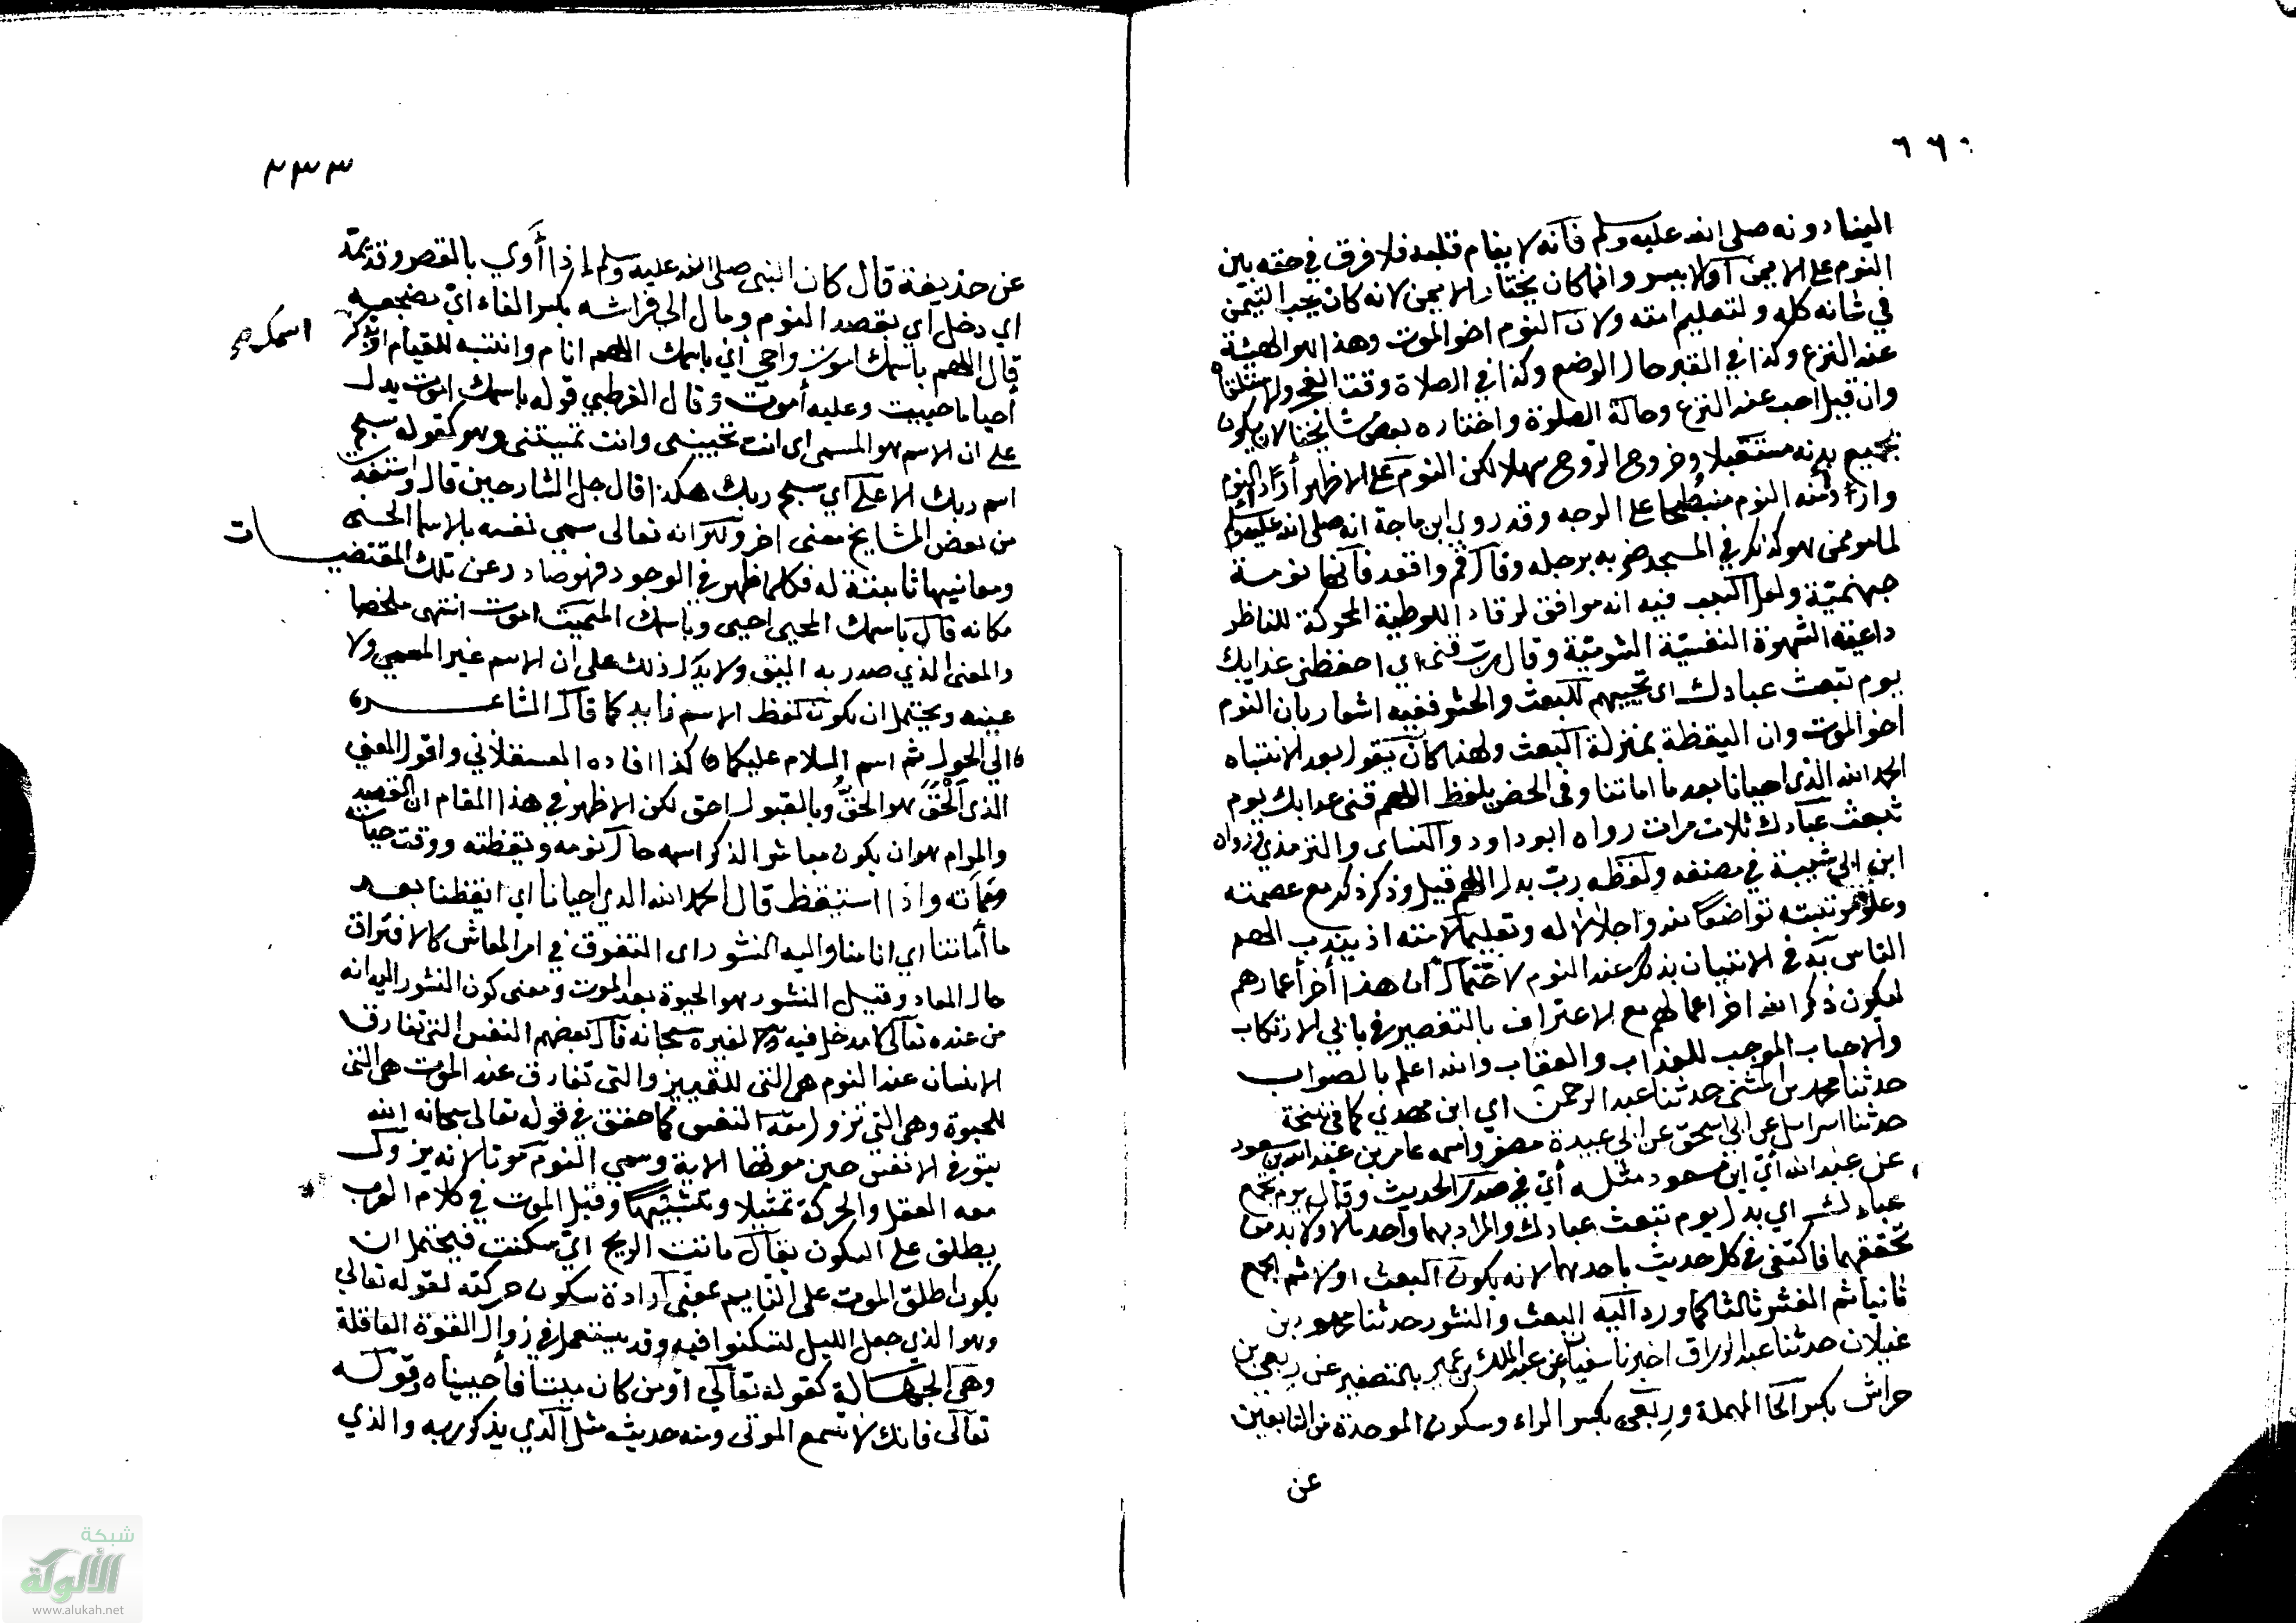 ٦٦٠
الينا دونه صلى الله عليه وسلم فانه لا ينام قلبه فلا فرق في حقه بين
النوم على الايمن او الايسر وانما كان يختار الايمن لانه كان يحب التيمن
في شانه كله ولتعليم امته ولان النوم اخو الموت وهذا هو الهيئة
عند النزع وكذا في القبر حال الوضع وكذا في الصلاة وقت العجز ولها مستلقيا
وان قيل احب عند النزع وحالة الصلوة واختاره بعض مشايخنا لان يكون
بجميع بدنه مستقبلا وخروج الروح سهلا لكن النوم على الاظهر اردأ النوم
واردأ منه النوم منبطحا على الوجه وقد روي ابن ماجة انه صلى الله عليه وسلم
لما مر بمن هو كذلك في المسجد ضربه برجله وقال قم واقعد فانها نومة
جهنمية ولعل السبب فيه انه موافق لرقاد اللوطية المحركة للناظر
داعية الشهوة النفسية الشومية وقال رب قني اي احفظني عذابك
يوم تبعث عبادك اي تحييهم للبعث والحشر ففيه اشعار بان النوم
اخو الموت وان اليقظة بمنزلة البعث ولهذا كان يقول بعد الانتباه
الحمد لله الذي احيانا بعد ما اماتنا وفي الحصن بلفظ اللهم قني عذابك يوم
تبعث عبادك ثلاث مرات رواه ابو داود والنساى والترمذي ورواه
ابن ابي شيبة في مصنفه ولفظه رب بدل اللهم قيل وذكر ذلك مع عصمته
وعلو مرتبته تواضعا لله واجلالا له وتعليما لامته اذ يندب لهم
التاسي به في الاتيان بذلك عند النوم لاحتمال ان هذا آخر اعمارهم
ليكون ذكر الله اخر اعمالهم مع الاعتراف بالتقصير في بابي الارتكاب
والاجتناب الموجب للعذاب والعقاب والله اعلم بالصواب
حدثنا محمد بن المثنى حدثنا عبد الرحمن اي ابن مهدي كما في نسخة
حدثنا اسرائيل عن ابي اسحق عن ابي عبيدة مصغر واسمه عامر بن عبد الله بن مسعود
عن عبد الله اي ابن مسعود مثله أي في صدر الحديث وقال يوم تجمع
عبادك اي بدل يوم تبعث عبادك والمراد بهما واحد مآلا ولا بد من
تحققهما فاكتفى في كل حديث باحدهما لانه يكون البعث اولا ثم الجمع
ثانيا ثم النشر ثالثا كما ورد اليه البعث والنشور حدثنا محمود بن
غيلان حدثنا عبد الرزاق اخبرنا سفيان عن عبد الملك بن عمير بالتصغير عن ربعي بن
حراش بكسر الحا المهملة وربعي بكسر الراء وسكون الموحدة من التابعين
عن
٢٣٣
عن حذيفة قال كان النبي صلى الله عليه وسلم اذا أوي بالقصر وقد يمد
اي دخل اي بقصد النوم ومال الى فراشه بكسر الفاء أي مضجعه
قال اللهم باسمك اموت واحي أي باسمك اللهم انام وانتبه للقيام او بذكر
اسمك صح
أحيا ما حييت وعليه أموت وقال القرطبي قوله باسمك اموت يدل
على ان الاسم هو المسمى اى انت تحييني وانت تميتني وهو كقوله سبح
اسم ربك الاعلى اي سبح ربك هكذا قال جل الشارحين قال واستفدت
من بعض المشايخ معنى اخر وذلك انه تعالى سمى نفسه بالاسما الحسنى
ومعانيها ثابتة له فكلما ظهر في الوجود فهو صادر عن تلك المقتضيات
فكانه قال باسمك المحيي احيي وباسمك المميت اموت انتهى ملخصا
والمعنى الذي صدر به اليق ولا يدل ذلك على ان الاسم غير المسمى ولا
عينه ويحتمل ان يكون لفظ الاسم زايد كما قال الشاعر
الي الحول ثم اسم السلام عليكما كذا افاده العسقلاني واقول المعني
الذي الحق هو الحق وبالقبول احق لكن الاظهر في هذا المقام ان القصد
والمرام هو ان يكون مباشر الذكر اسمه حال نومه ويقظته ووقت حياته
ومماته واذا استيقظ قال الحمد لله الذي احيانا اى ايقظنا بعد
ما أماتنا اي انامنا واليه النشور اى التفرق في امر المعاش كالافتراق
حال المعاد وقيل النشور هو الحيوة بعد الموت ومعنى كون النشور اليه انه
من عنده تعالى لا مدخل فيه لغيره سبحانه قال بعضهم النفس التي تفارق
الانسان عند النوم هي التى للتمييز والتي تفارق عند الموت هي التى
للحيوة وهي التي تزول معها النفس كما حقق في قوله تعالى سبحانه الله
يتوفى الانفس حين موتها الاية وسمي النوم موتا لانه يزول
معه العقل والحركة تمثيلا وتشبيها وقيل الموت في كلام العرب
يطلق على السكون يقال ماتت الريح اي سكنت فيحتمل ان
يكون اطلق الموت على النايم بمعنى ارادة سكون حركته لقوله تعالى
وهو الذي جعل الليل لتسكنوا فيه وقد يستعمل في زوال القوة العاقلة
وهي الجهالة كقوله تعالى اومن كان ميتا فأحييناه وقوله
تعالى فانك لا تسمع الموتى ومنه حديثه مثل الذي يذكر ربه والذي
شبكة
الألوكة
www.alukah.net